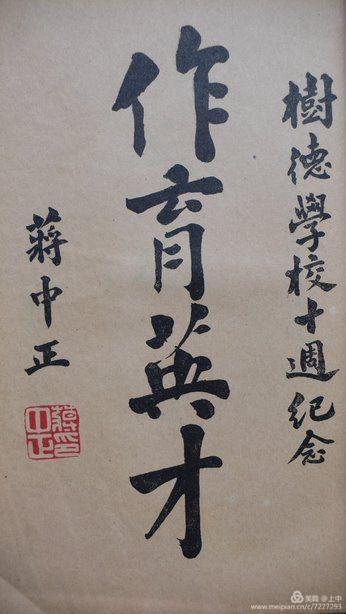 樹德學校十週紀念
作育英才
蔣中正
蔣中正印
美篇 @上中
www.meipian.cn/c/7227293